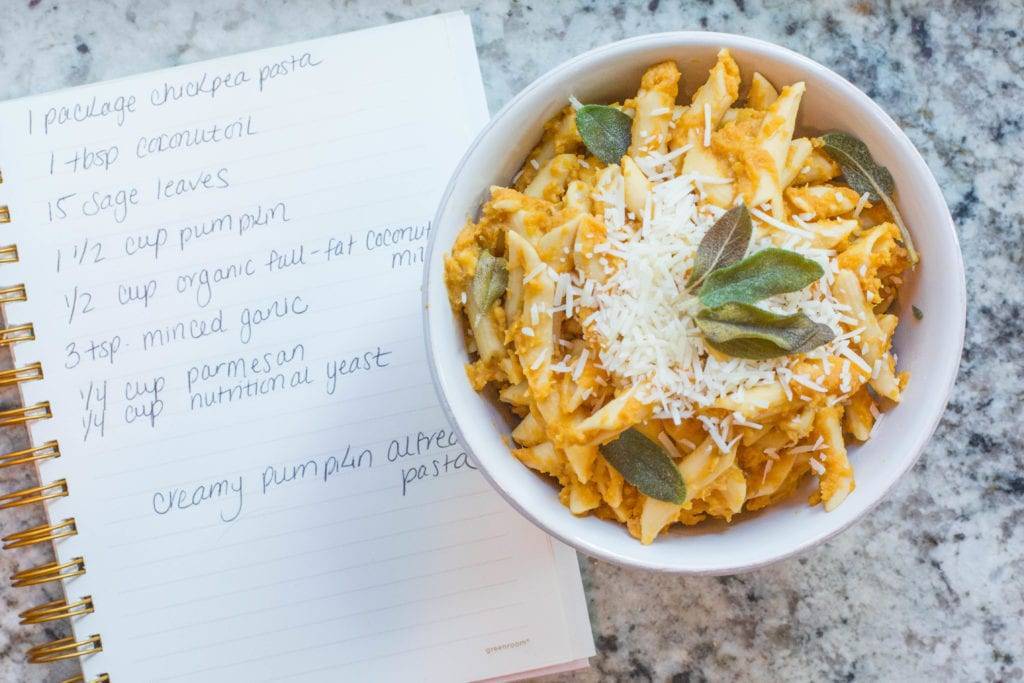 1 package chickpea pasta
1 tbsp coconut oil
15 sage leaves
1 1/2 cup pumpkin
1/2 cup organic full-fat coconut
mil
3 tsp. minced garlic
1/4 cup parmesan
1/4 cup nutritional yeast
creamy pumpkin alfred
pasta
greenroom®